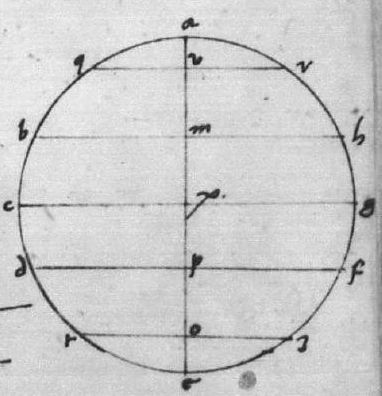 a
q v v
b m h
c g
d p f
r o z
e